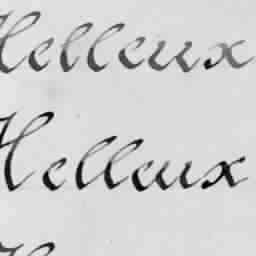 Helleux
Helleux